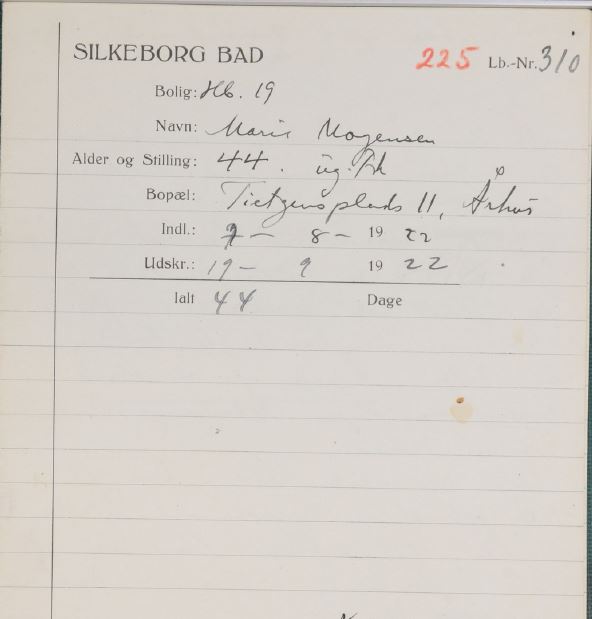 SILKEBORG BAD 225 Lb.-Nr. 310
Bolig: Hb. 19
Navn: Marie Mogensen
Alder og Stilling: 44. ug. Frk
Bopæl: Tietgensplads 11, Århus
Indl.: 7 - 8 - 19 22
Udskr.: 19 - 9 19 22
Ialt 44 Dage